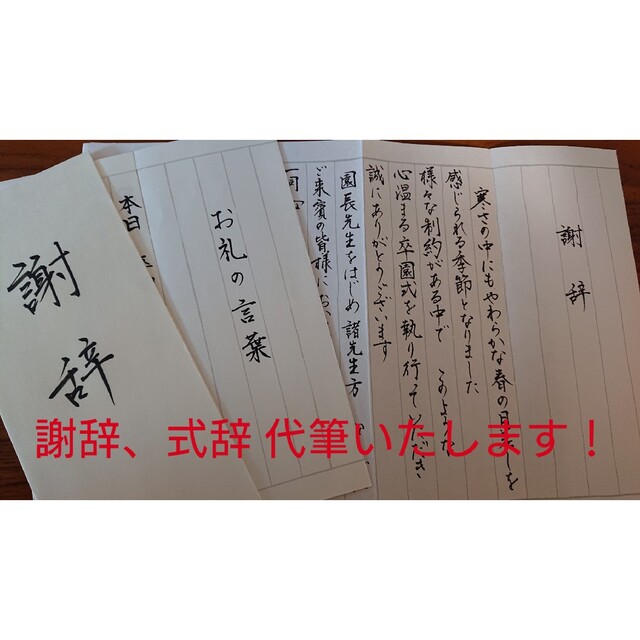 謝辞
寒さの中にもやわらかな春の日差しを
感じられる季節となりました
様々な制約がある中で このような
心温まる卒園式を執り行っていただき
誠にありがとうございます
園長先生をはじめ 諸先生方
ご来賓の皆様に
お礼の言葉
本日
謝辞
謝辞、式辞 代筆いたします！